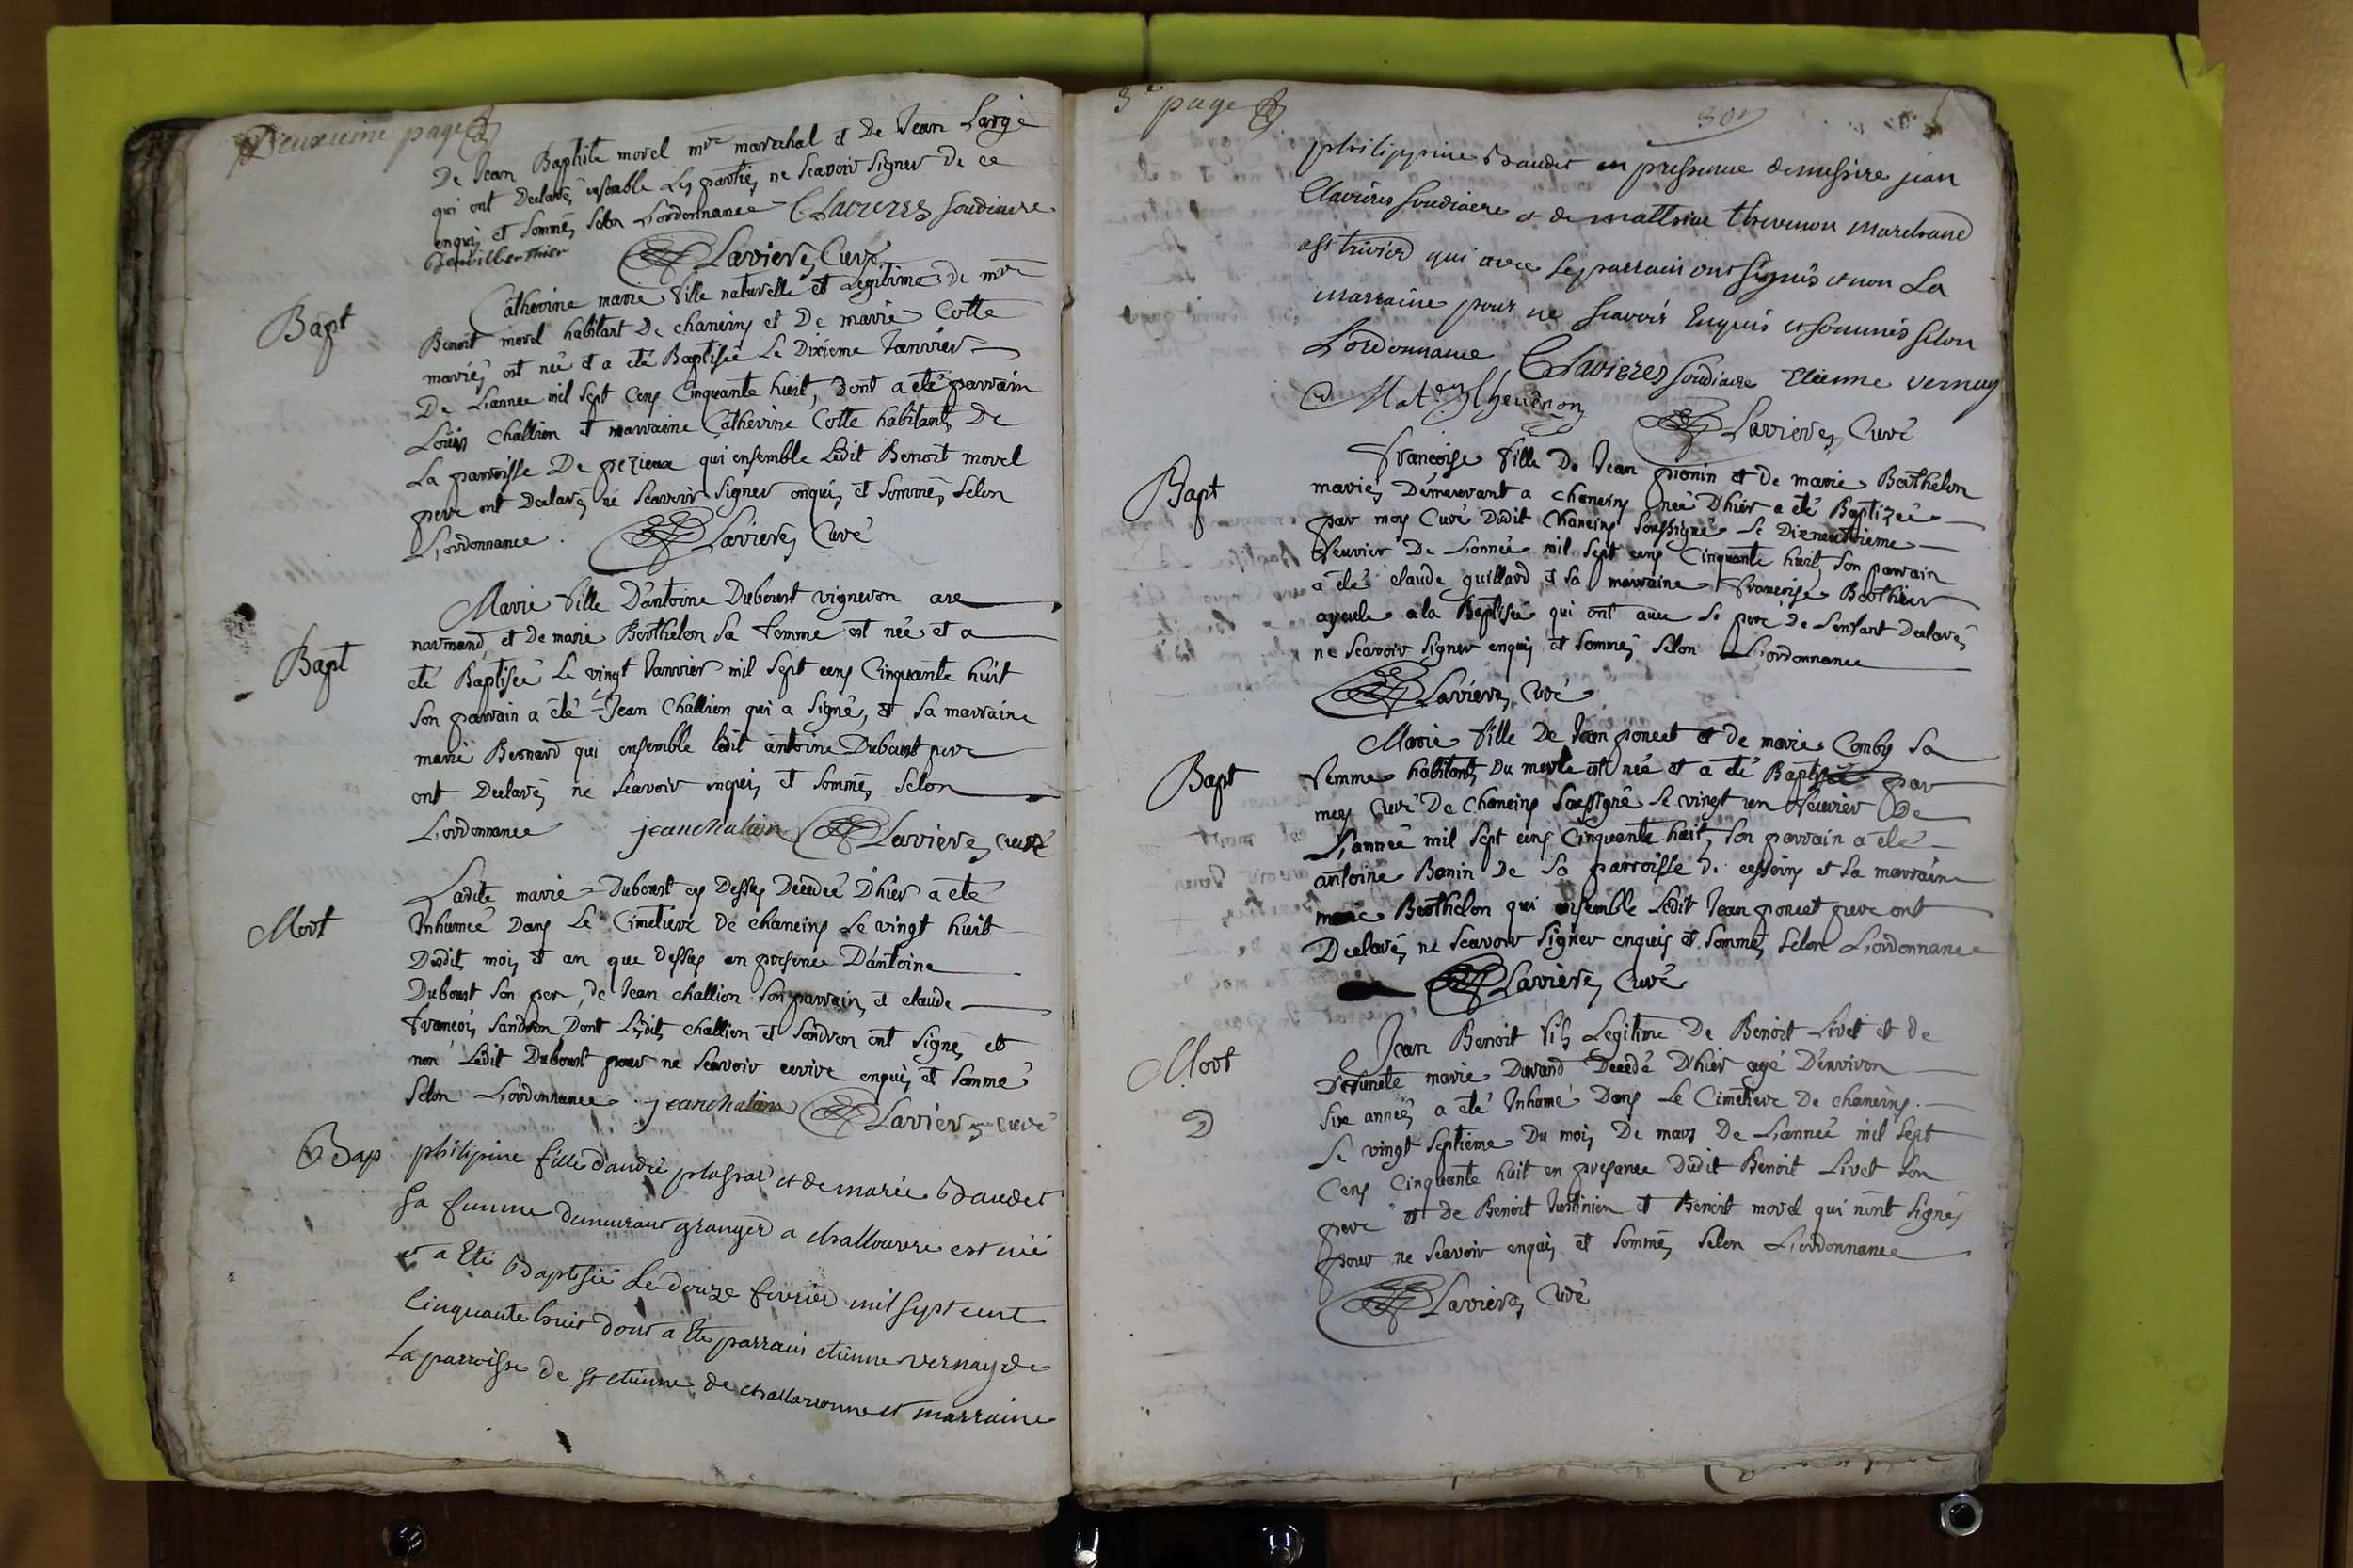 Deuxieme page
De Jean Baptiste morel mre marechal et De Jean Large
qui ont Declarés ensemble Les parties ne Scavoir Signer De ce
enquis et Sommés Selon L'ordonnance Clavieres Soudiacre
Benoit berthier
Clavieres Curé
Bapt
Catherine marie fille naturelle et Legitime De mre
Benoit morel habitant De chaneins et De marie Cotte
mariés est née et a eté Baptisée Le Dixieme Janvier
De L'année mil Sept Cens Cinquante huit, Dont a eté parrain
Loüis Challion et marraine Catherine Cotte habitants De
La parroisse De pezieux qui ensemble Ledit Benoit morel
pere ont Declarés ne Scavoir Signer enquis et Sommés Selon
L'ordonnance. Clavieres Curé
Bapt
Marie fille D'antoine Duboust vigneron a
narmand, et de marie Berthelon Sa femme est née et a
eté Baptisée Le vingt Janvier mil Sept cens Cinquante huit
Son parrain a été Jean Challion qui a Signé, et Sa marraine
marie Bernard qui ensemble ledit antoine Duboust pere
ont Declarés ne Scavoir enquis et Sommés Selon
L'ordonnance jean chalion Clavieres curé
Mort
Ladite marie Duboust cy Dessus Decedée D'hier a eté
Inhumée Dans Le Cimetiere De chaneins Le vingt huit
Dudit mois et an que Dessus en presence D'antoine
Duboust Son pere, de Jean challion Son parrain et claude
françois Sandron Dont Lesdits challion et Sandron ont Signés et
non Ledit Duboust pour ne Scavoir ecrire enquis et Sommé
Selon L'ordonnance. jean chalion Clavieres curé
Bap
philipine fille d'andré et de marie Baudet
Sa femme demeurant granger a challouvre est née
et a Eté Baptisée Le douze fevrier mil sept cent
cinquante huit dont a Eté parrain etienne vernay de
La parroisse de St etienne de challaronne et marraine
3e page
301
philippine Baudet en presence de messire jean
Clavieres Soudiacre et de matthieu thevenon marchand
a St trivier qui avec Le parrain ont Signés et non La
marraine pour ne Scavoir Enquis et Sommés Selon
L'ordonnance Clavieres Soudiacre Etienne vernay
Mat. Thevenon Clavieres Curé
Bapt
françoise fille De Jean pionin et de marie Berthelon
mariés Demeurant a chaneins née D'hier a eté Baptizée
par moy Curé Dudit Chaneins Soussigné Le Dixneuvieme
fevrier De L'année mil Sept cens Cinquante huit, Son parrain
a été claude guillard et Sa marraine françoise Berthier
ayeule a la Baptisée qui ont avec Le pere de L'enfant Declarés
ne Scavoir Signer enquis et Sommés Selon L'ordonnance
Clavieres Curé
Bapt
Marie fille De Jean poncet et de marie Comby Sa
femme habitants Du merle est née et a eté Baptisée par
moy Curé De Chaneins Soussigné Le vingt un fevrier De
L'année mil Sept cens Cinquante huit, Son parrain a été
antoine Bonin De La parroisse De cesseins et Sa marraine
marie Berthelon qui ensemble Ledit Jean poncet pere ont
Declarés ne Scavoir Signer enquis et Sommés Selon L'ordonnance
Clavieres Curé
Mort
2
Jean Benoit fils Legitime De Benoit Livet et de
Defuncte marie Durand Decedé D'hier agé D'environ
Six années a eté Inhumé Dans Le Cimetiere De chaneins.
Le vingt Septieme Du mois De mars De L'année mil Sept
Cens Cinquante huit en presence Dudit Benoit Livet Son
pere et de Benoit Justinien et Benoit morel qui n'ont Signés
pour ne Scavoir enquis et Sommés Selon L'ordonnance
Clavieres Curé